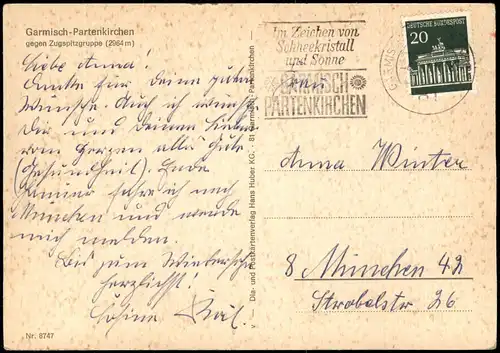 Garmisch-Partenkirchen
gegen Zugspitzgruppe (2964 m)
Liebe Anna!
Danke für Deine guten
Wünsche. Auch ich wünsche
Dir und Deinen Lieben
vom Herzen alles Gute
(Gesundheit). Ende
Jänner fahre ich nach
München und werde
mich melden.
Bis zum Wiedersehn
herzlichst!
Nr. 8747
Dia- und Postkartenverlag Hans Huber KG. - 81 Garmisch-Partenkirchen
Im Zeichen von
Schneekristall
und Sonne
GARMISCH
PARTENKIRCHEN
DEUTSCHE BUNDESPOST
20
GARMIS
Frau
Anna Winter
8 München 42
Strobelstr 26